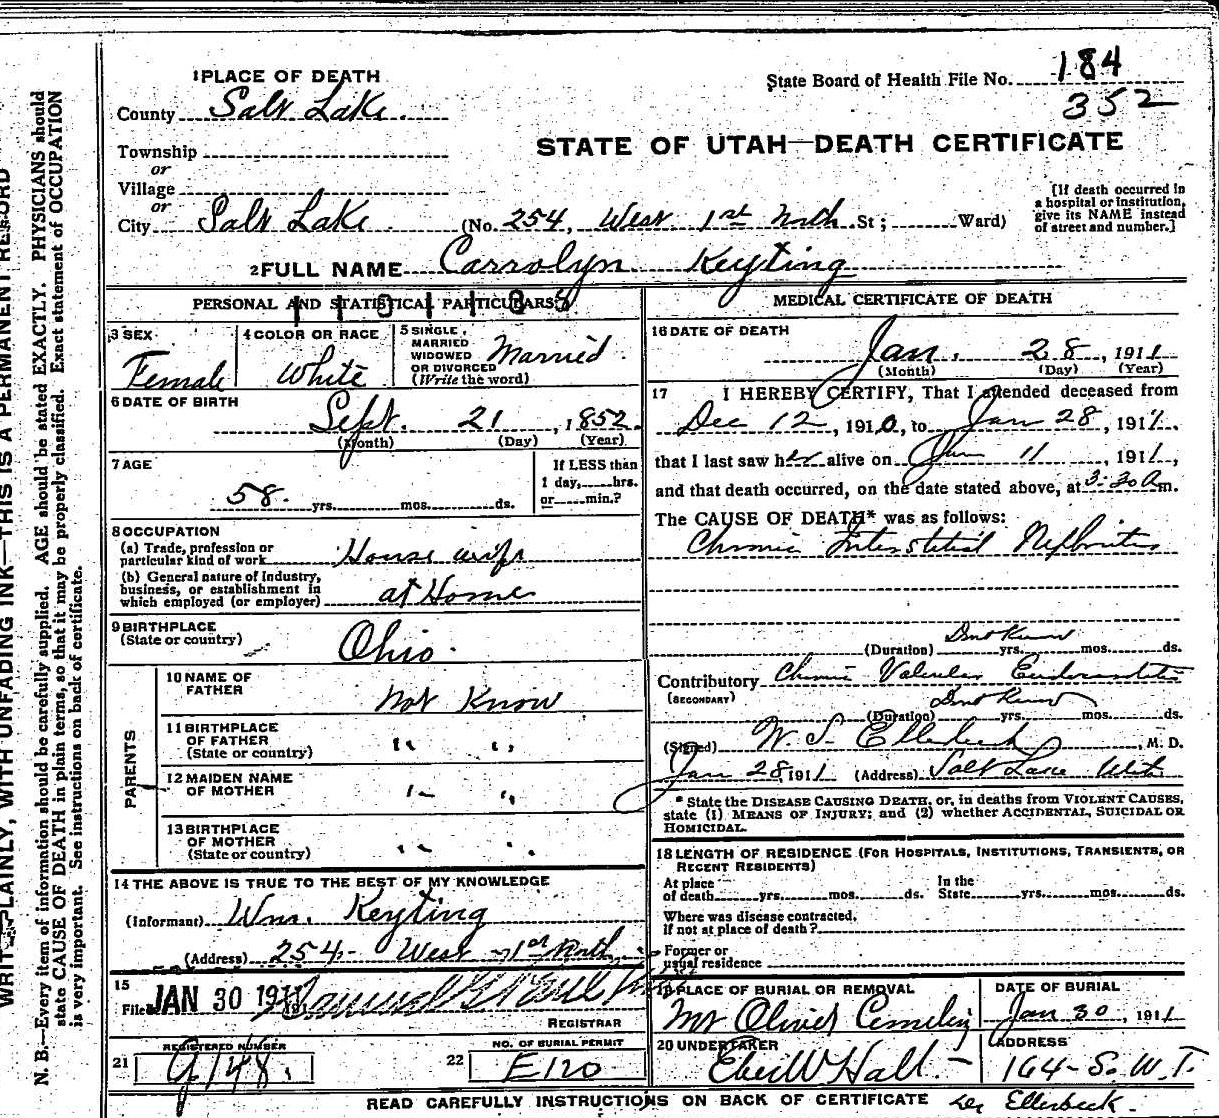 1 PLACE OF DEATH
State Board of Health File No. 184
County Salt Lake
352
STATE OF UTAH—DEATH CERTIFICATE
Township
or
Village
or
City Salt Lake (No. 254, West 1st North St; Ward)
[If death occurred in
a hospital or institution,
give its NAME instead
of street and number.]
2 FULL NAME Carrolyn Keyting
PERSONAL AND STATISTICAL PARTICULARS
3 SEX
Female
4 COLOR OR RACE
White
5 SINGLE,
MARRIED
WIDOWED
OR DIVORCED
(Write the word)
Married
6 DATE OF BIRTH
Sept. 21, 1852
(Month) (Day) (Year)
7 AGE
58 yrs. mos. ds.
If LESS than
1 day, hrs.
or min.?
8 OCCUPATION
(a) Trade, profession or
particular kind of work House wife
(b) General nature of Industry,
business, or establishment in
which employed (or employer) at Home
9 BIRTHPLACE
(State or country)
Ohio
PARENTS
10 NAME OF
FATHER
Not Know
11 BIRTHPLACE
OF FATHER
(State or country)
" "
12 MAIDEN NAME
OF MOTHER
" "
13 BIRTHPLACE
OF MOTHER
(State or country)
" "
14 THE ABOVE IS TRUE TO THE BEST OF MY KNOWLEDGE
(Informant) Wm. Keyting
(Address) 254- West 1st North
15
Filed JAN 30 1911
REGISTRAR
21
REGISTERED NUMBER
G148.
22
NO. OF BURIAL PERMIT
E120
MEDICAL CERTIFICATE OF DEATH
16 DATE OF DEATH
Jan. 28, 1911
(Month) (Day) (Year)
17 I HEREBY CERTIFY, That I attended deceased from
Dec 12, 1910, to Jan 28, 1911,
that I last saw her alive on Jan 11, 1911,
and that death occurred, on the date stated above, at 3:30 Am.
The CAUSE OF DEATH* was as follows:
Chronic Interstitial Nephritis
Dont Know
(Duration) yrs. mos. ds.
Contributory Chronic Valvular Endocarditis
(SECONDARY)
Dont Know
(Duration) yrs. mos. ds.
(Signed) W. S. Ellerbeck, M. D.
Jan 28, 1911 (Address) Salt Lake Utah
* State the DISEASE CAUSING DEATH, or, in deaths from VIOLENT CAUSES,
state (1) MEANS OF INJURY; and (2) whether ACCIDENTAL, SUICIDAL OR
HOMICIDAL.
18 LENGTH OF RESIDENCE (FOR HOSPITALS, INSTITUTIONS, TRANSIENTS, OR
RECENT RESIDENTS)
At place
of death yrs. mos. ds.
In the
State yrs. mos. ds.
Where was disease contracted,
if not at place of death?
Former or
usual residence
19 PLACE OF BURIAL OR REMOVAL
Mt Olivet Cemetery
DATE OF BURIAL
Jan 30, 1911
20 UNDERTAKER
Eber W Hall.
ADDRESS
164- S. W. T.
READ CAREFULLY INSTRUCTIONS ON BACK OF CERTIFICATE
Ellerbeck.
WRITE PLAINLY, WITH UNFADING INK—THIS IS A PERMANENT RECORD
N. B.—Every item of information should be carefully supplied. AGE should be stated EXACTLY. PHYSICIANS should
state CAUSE OF DEATH in plain terms, so that it may be properly classified. Exact statement of OCCUPATION
is very important. See instructions on back of certificate.